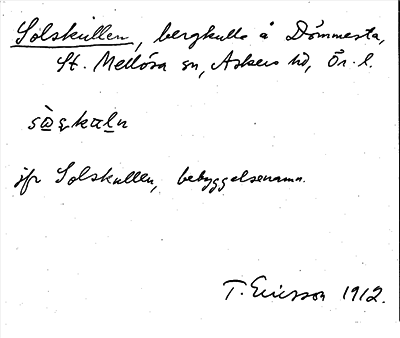 Solskullen, bergkulle å Dömmesta,
St. Mellösa sn, Askers hd, Ör. l.
jfr Solskullen, bebyggelsenamn.
T. Ericsson 1912.